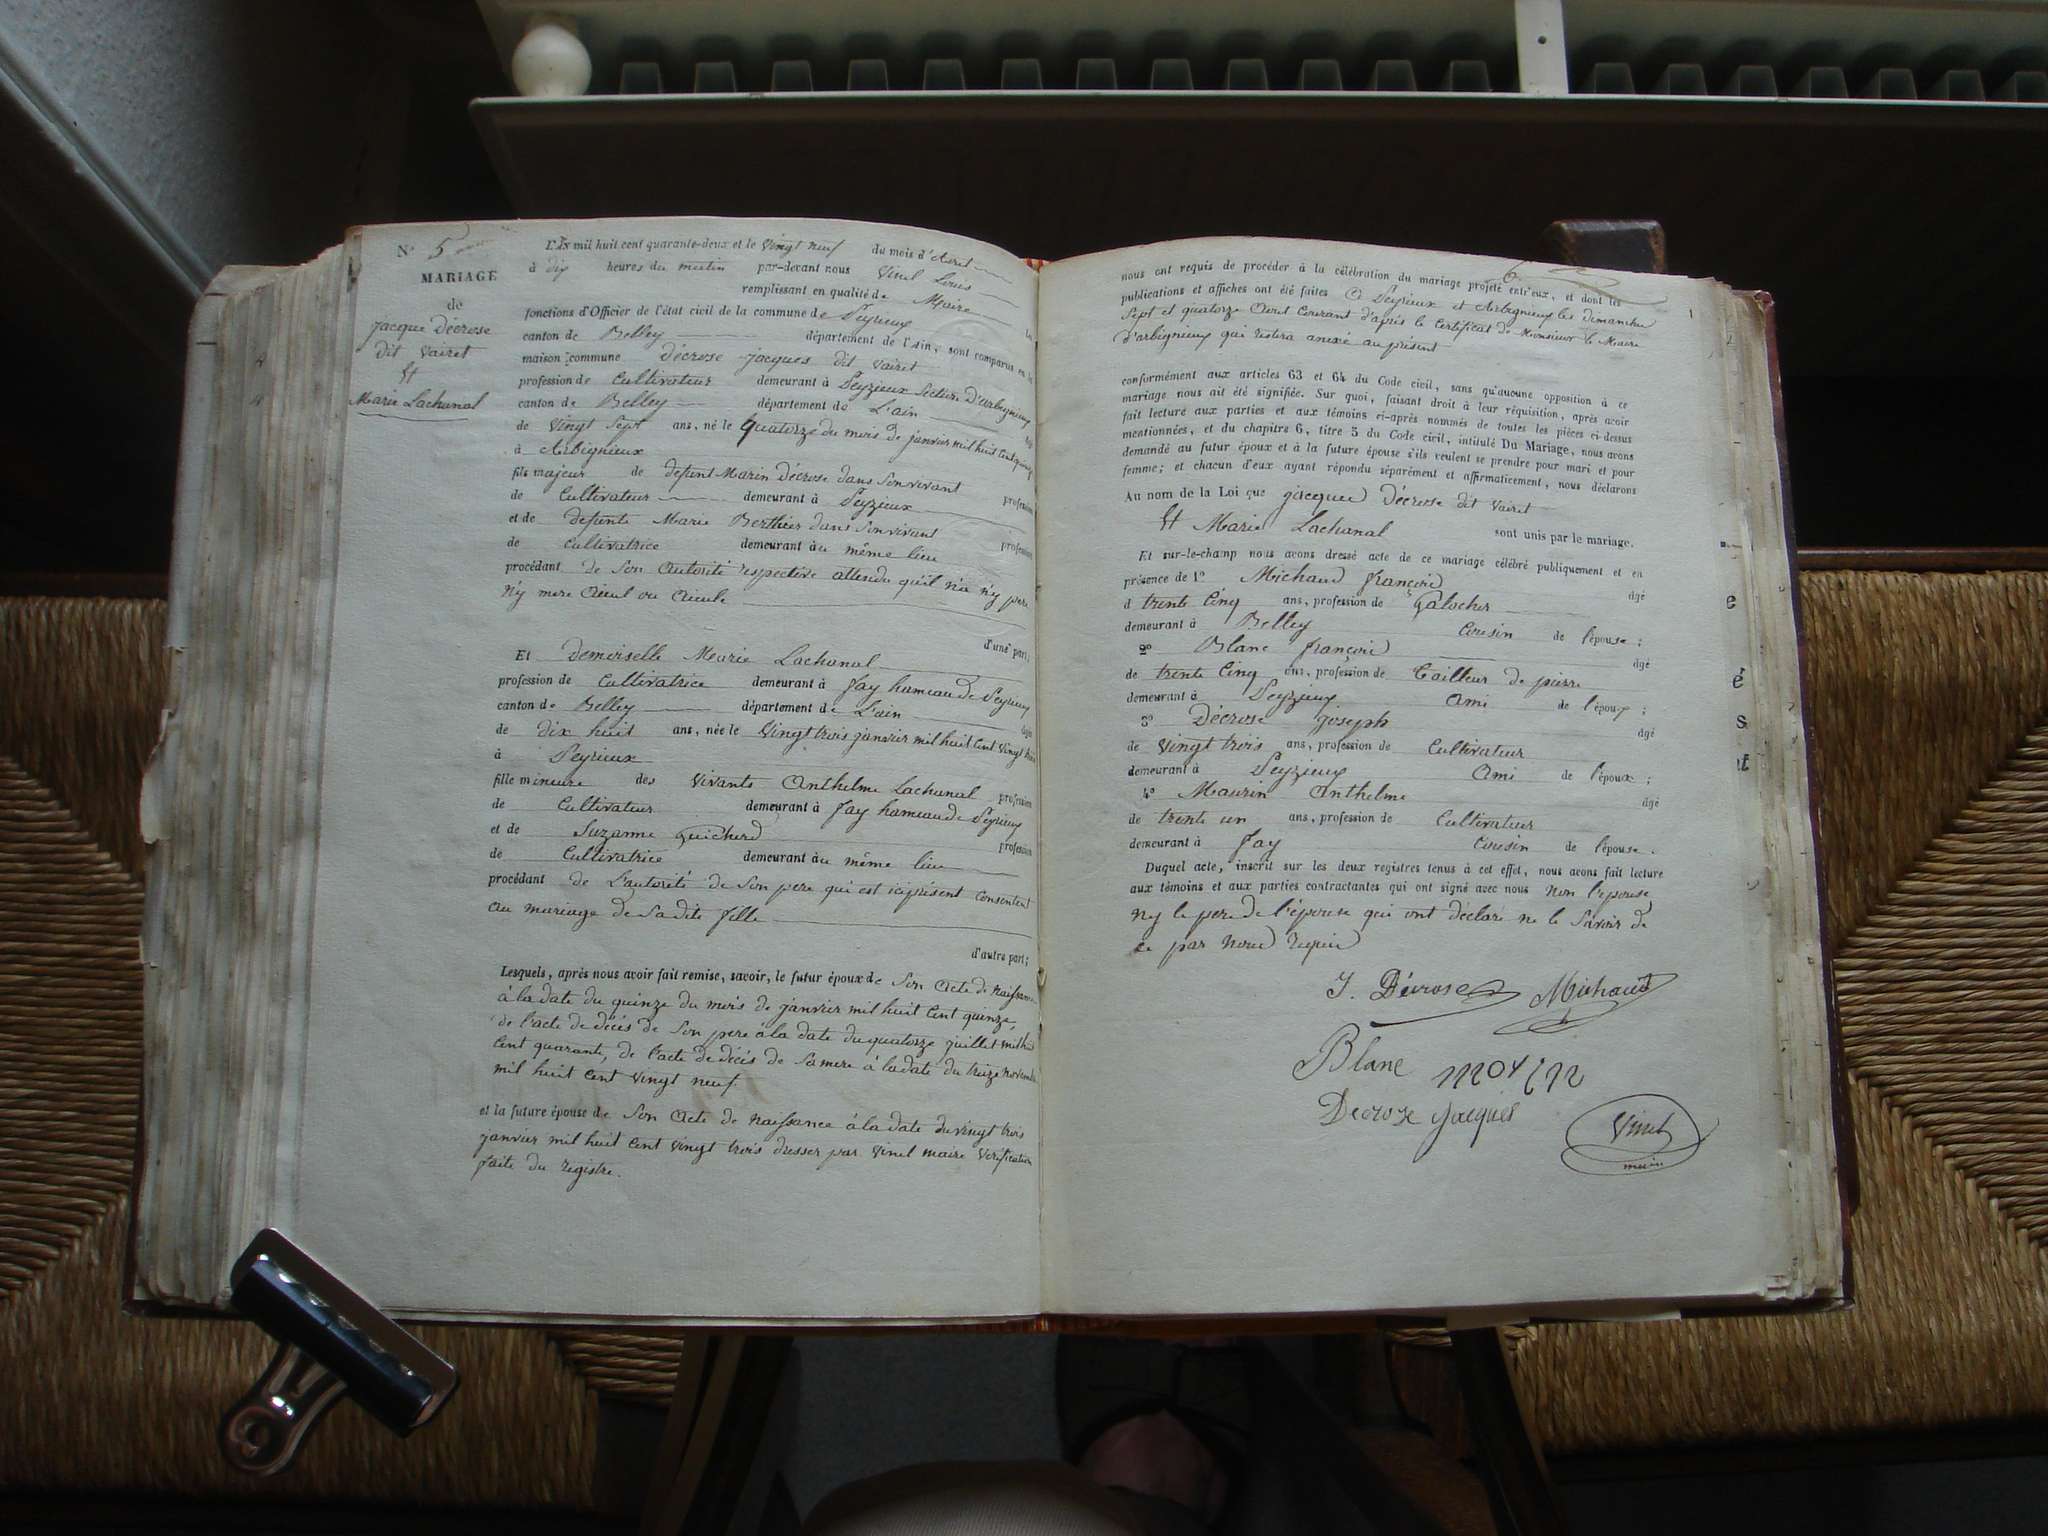 N° 5
MARIAGE
de
Jacque Décrose
dit Vairet
Et
Marie Lachanal
L'An mil huit cent quarante-deux et le Vingt neuf du mois d'Avril
à dix heures du matin par-devant nous Vinel Louis
remplissant en qualité de Maire les
fonctions d'Officier de l'état civil de la commune de Peyrieux
canton de Belley département de l'Ain, sont comparus en la
maison commune Décrose Jacques dit Vairet
profession de Cultivateur demeurant à Peyzieux section d'arbignieux
canton de Belley département de L'ain
de Vingt Sept ans, né le quatorze du mois de janvier mil huit Cent quinze
à Arbignieux
fils majeur de defunt Marin Décrose dans Son vivant profession
de Cultivateur demeurant à Peyzieux
et de defunte Marie Berthier dans Son vivant profession
de Cultivatrice demeurant au même lieu
procédant de Son Autorité respective attendu qu'il n'a n'y pere
n'y mere Aieul ou Aieule
d'une part;
Et demoiselle Marie Lachanal
profession de Cultivatrice demeurant à Fay hameau de Peyrieux
canton de Belley département de L'ain âgée
de dix huit ans, née le Vingt trois janvier mil huit Cent Vingt trois
à Peyrieux
fille mineure des Vivants Anthelme Lachanal profession
de Cultivateur demeurant à Fay hameau de Peyrieux
et de Suzanne Guicherd profession
de Cultivatrice demeurant au même lieu
procédant de L'autorité de Son pere qui est ici présent Consentent
au mariage de Sa dite fille
d'autre part;
Lesquels, après nous avoir fait remise, savoir, le futur époux de Son Acte de Naissance
à la date du quinze du mois de janvier mil huit Cent quinze,
de l'acte de décès de Son pere à la date du quatorze juillet mil huit
Cent quarante, de l'acte de décès de Sa mere à la date du treize Novembre
mil huit Cent Vingt neuf
et la future épouse de Son Acte de Naissance à la date du vingt trois
janvier mil huit Cent Vingt trois dresser par Vinel maire Verification
faite du registre.
6
nous ont requis de procéder à la célébration du mariage projeté entr'eux, et dont les
publications et affiches ont été faites à Peyrieux et Arbignieux les dimanches
Sept et quatorze Avril Courant d'après le Certificat de Monsieur le Maire
d'arbignieux qui restera anexé au présent
conformément aux articles 63 et 64 du Code civil, sans qu'aucune opposition à ce
mariage nous ait été signifiée. Sur quoi, faisant droit à leur réquisition, après avoir
fait lecture aux parties et aux témoins ci-après nommés de toutes les pièces ci-dessus
mentionnées, et du chapitre 6, titre 5 du Code civil, intitulé Du Mariage, nous avons
demandé au futur époux et à la future épouse s'ils veulent se prendre pour mari et pour
femme; et chacun d'eux ayant répondu séparément et affirmativement, nous déclarons
Au nom de la Loi que jacques Décrose dit Vairet
Et Marie Lachanal sont unis par le mariage.
Et sur-le-champ nous avons dressé acte de ce mariage célébré publiquement et en
présence de 1° Michaud françois âgé
d trente Cinq ans, profession de Galocher
demeurant à Belley Cousin de l'épouse;
2° Blanc françois âgé
de trente Cinq ans, profession de tailleur de pierre
demeurant à Peyzieux Ami de l'époux;
3° Décrose joseph âgé
de Vingt trois ans, profession de Cultivateur
demeurant à Peyzieux Ami de l'époux;
4° Maurin Anthelme âgé
de trente un ans, profession de Cultivateur
demeurant à Fay Cousin de l'épouse.
Duquel acte, inscrit sur les deux registres tenus à cet effet, nous avons fait lecture
aux témoins et aux parties contractantes qui ont signé avec nous Non l'épouse
Ny le pere de l'épouse qui ont déclaré ne le Savoir de
ce par Nous requis
J. Décrose Michaud
Blanc
Decroze Jacques Vinel
maire